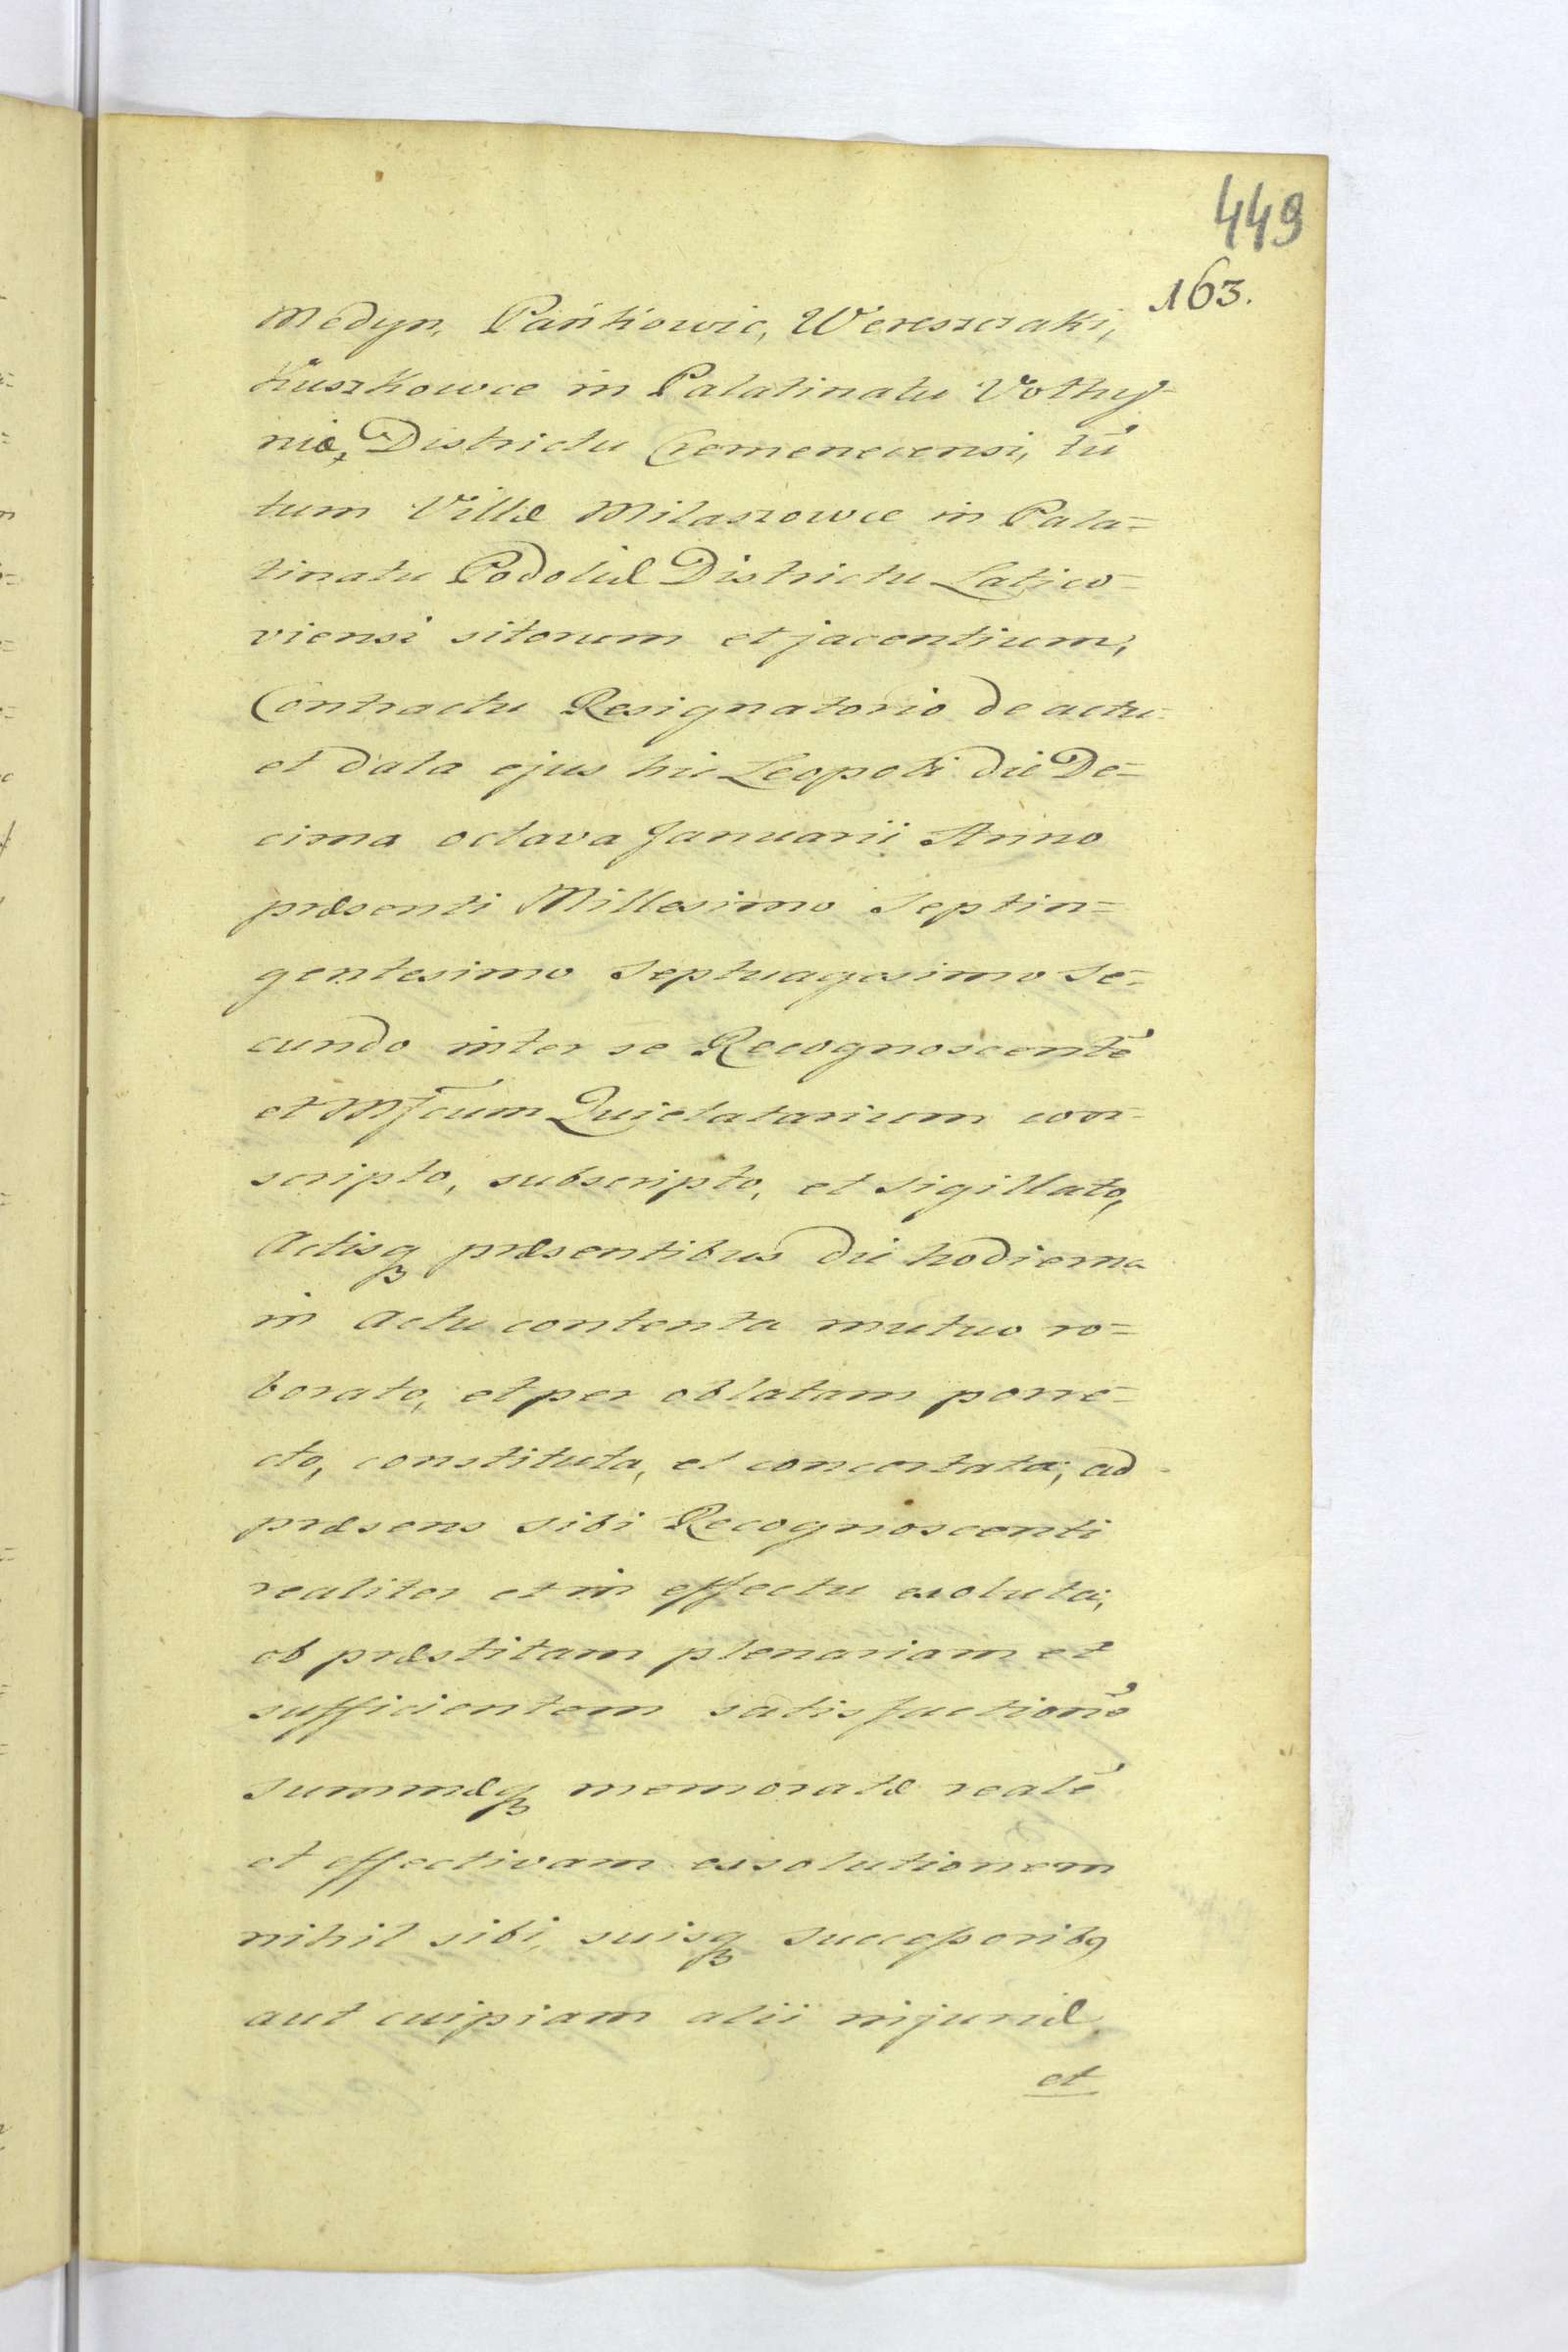 449
163.
Medyn, Pańkowic, Wereszczaki,
Kuszkowce in Palatinatu Volhy-
niæ, Districtu Cremenecensi, tū
tum Villæ Milaszowce in Pala=
tinatu Podoliæ Districtu Latico=
viensi sitorum et jacentium,
Contractu Resignatorio de actu
et data ejus hic Leopoli die De=
cima octava Januarii Anno
præsenti Millesimo Septin=
gentesimo Septuagesimo Se=
cundo inter se Recognoscentē
et Mfcum Quietatarium con-
scripto, subscripto, et sigillato,
Actisqꝫ præsentibus die hodierna
in Actu contenta mutuo ro=
borato, et per oblatam porre=
cto, constituta, et concertata, ad
præsens sibi Recognoscenti
realiter et in effectu exoluta,
ob præstitam plenariam et
sufficientem satisfactionē
summæqꝫ memoratæ realē
et effectivam exsolutionem
nihil sibi, suisqꝫ successoribꝯ
aut cuipiam alii injuriæ
et